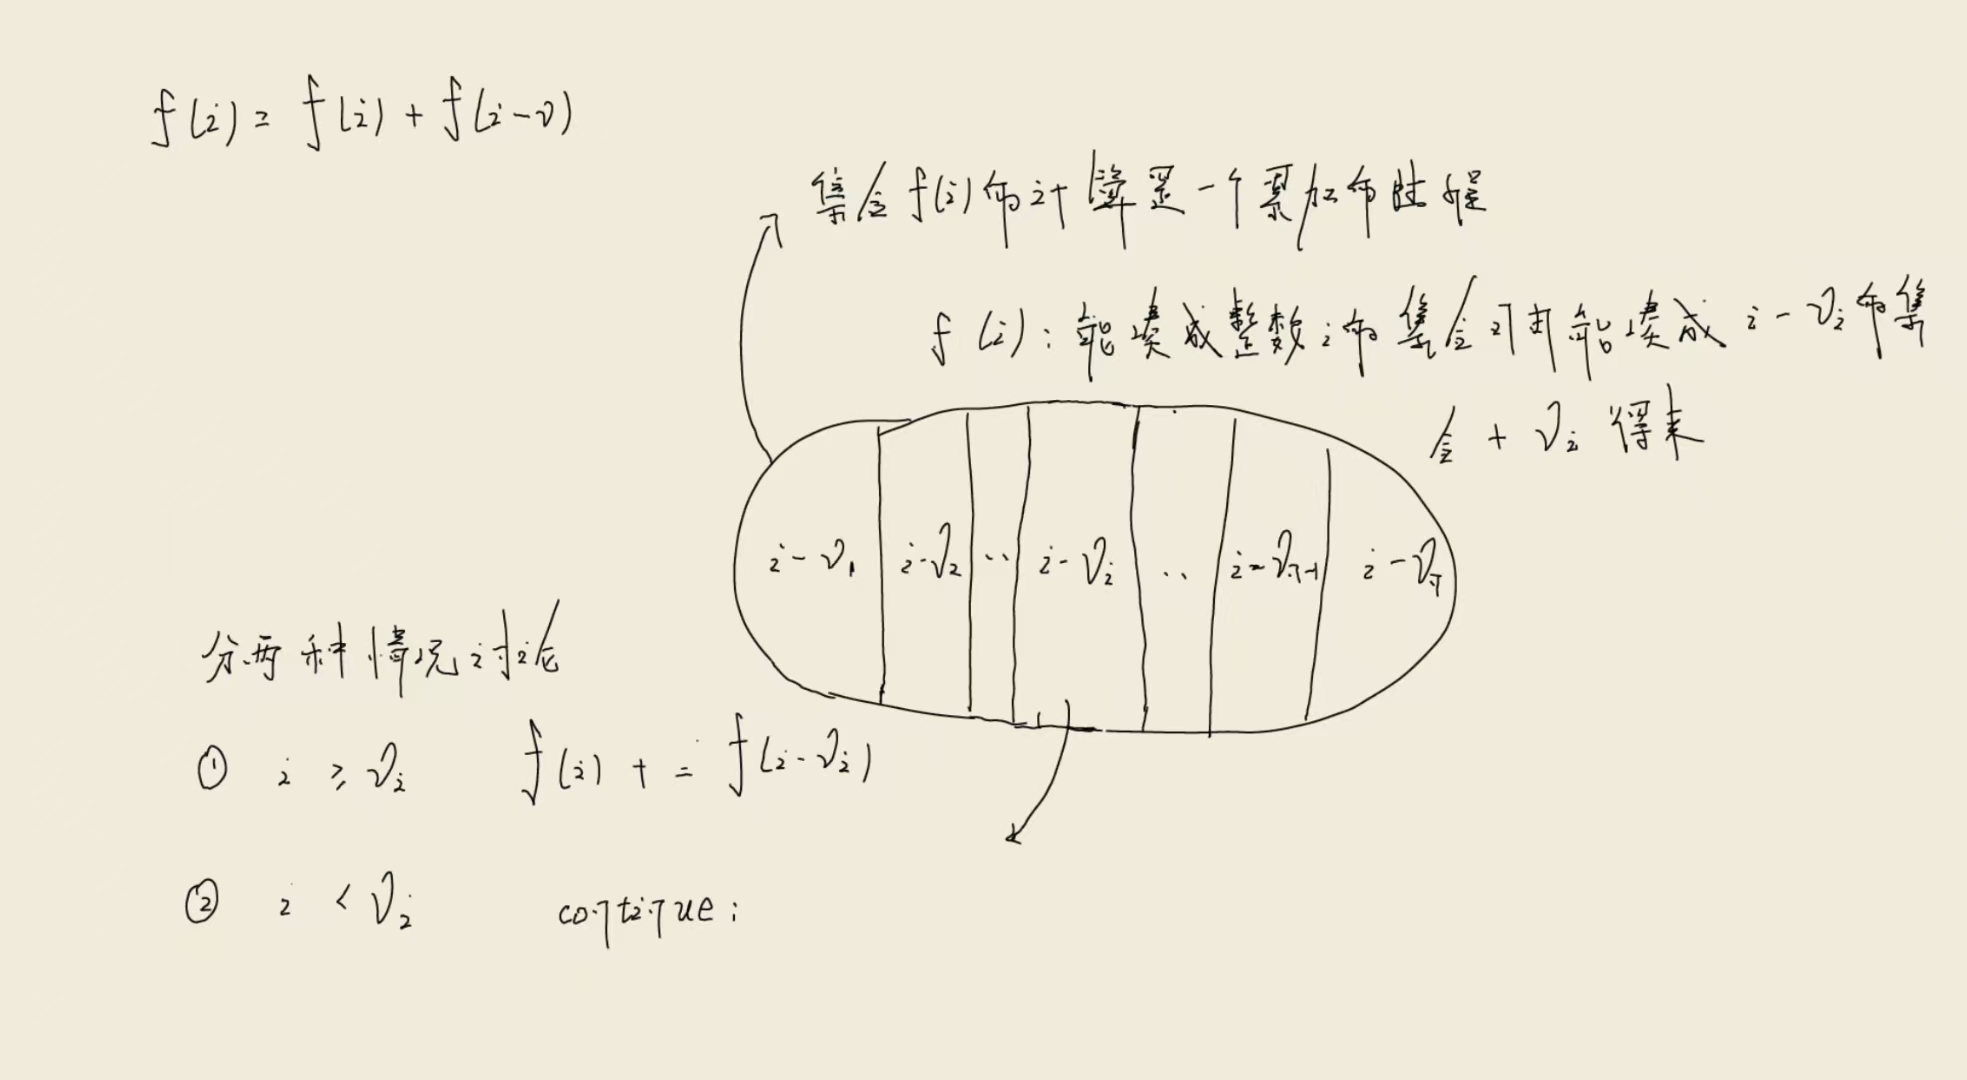 f(i) = f(i) + f(i-v)
集合f(i)的计算是一个累加的过程
f(i): 能凑成整数i的集合可由能凑成i-vi的集
合 + vi 得来
i-v1 i-v2 .. i-vi .. i-vn-1 i-vn
分两种情况讨论
① i ≥ vi f(i) += f(i-vi)
② i < vi continue;